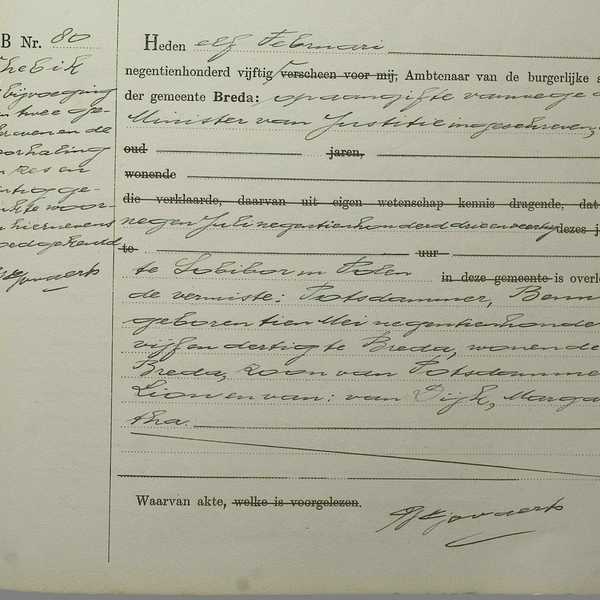 B Nr. 80
bijvoeging
twee ge-
en de
en
ge-
hiernevens
goedgekeurd
Heden elf Februari
negentienhonderd vijftig verscheen voor mij, Ambtenaar van de burgerlijke
der gemeente Breda: op aangifte vanwege
Minister van Justitie ingeschreven,
oud jaren,
wonende
die verklaarde, daarvan uit eigen wetenschap kennis dragende, dat
negen Juli negentienhonderd drie en veertig dezes
te uur
te Sobibor in Polen in deze gemeente is overle
de vermiste: Potsdammer, Benn
geboren tien Mei negentienhonder
vijf en dertig te Breda, wonende
Breda, zoon van Potsdamme
Lion en van: van Dijk, Marga
tha.
Waarvan akte, welke is voorgelezen.